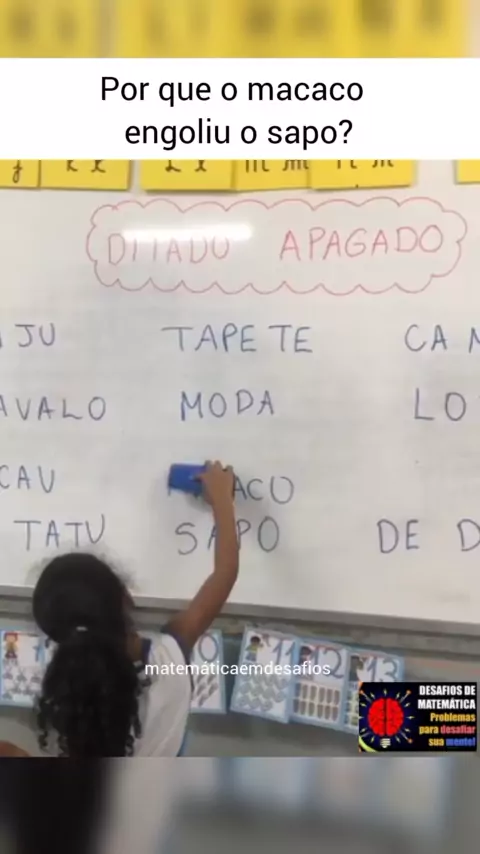 Por que o macaco
engoliu o sapo?
DITADO APAGADO
JU TAPETE CA
AVALO MODA LO
CAU ACU
TATU SAPO DE D
matemáticaemdesafios
11 12 13
DESAFIOS DE
MATEMÁTICA
Problemas
para desafiar
sua mente!